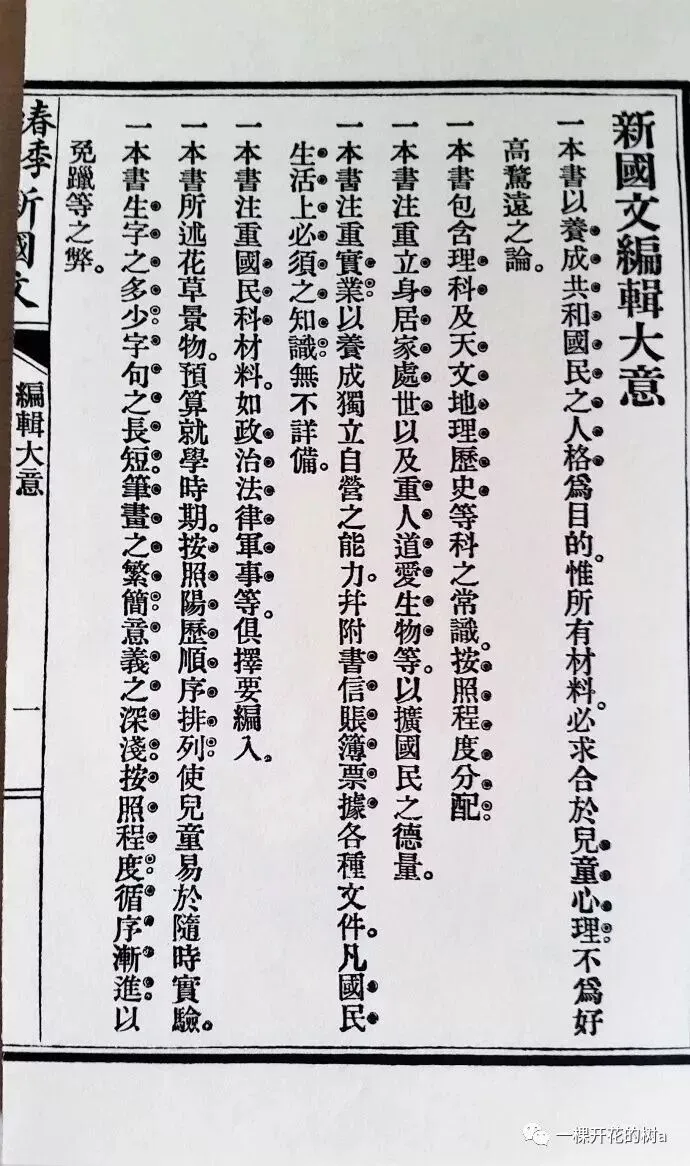 新國文編輯大意
一本書以養成共和國民之人格爲目的。惟所有材料。必求合於兒童心理。不爲好
高騖遠之論。
一本書包含理科及天文地理歷史等科之常識。按照程度分配。
一本書注重立身居家處世以及重人道愛生物等。以擴國民之德量。
一本書注重實業。以養成獨立自營之能力。幷附書信賬簿票據各種文件。凡國民
生活上必須之知識無不詳備。
一本書注重國民科材料。如政治法律軍事等。俱擇要編入。
一本書所述花草景物。預算就學時期。按照陽歷順序排列。使兒童易於隨時實驗。
一本書生字之多少。字句之長短。筆畫之繁簡。意義之深淺。按照程度。循序漸進。以
免躐等之弊。
春季新國文
編輯大意
一
一棵开花的树a